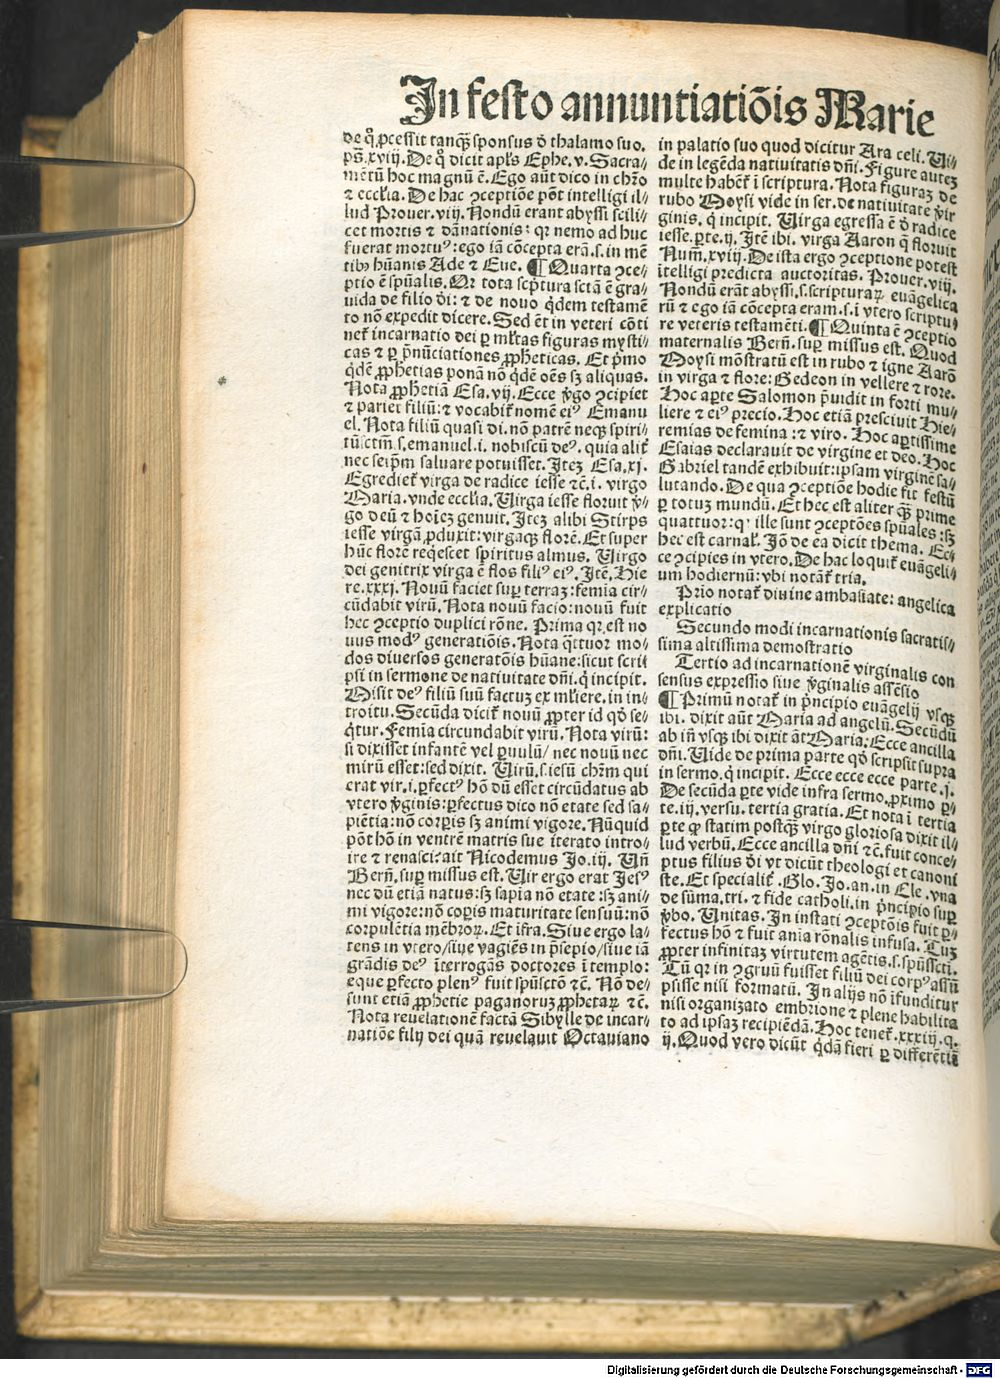 In festo annuntiatiõis Marie
de qͦ ꝓcessit tanqꝫ̃ sponsus ð thalamo suo.
ps̃. xviij. De qͦ dicit apl's Ephe. v. Sacra-
mẽtũ hoc magnũ ẽ. Ego aũt dico in chr̃o
⁊ eccl'ia. De hac ꝯceptiõe põt intelligi il-
lud Prouer. viij. Nondũ erant abyssi scili-
cet mortis ⁊ dãnationis: qꝛ nemo ad huc
fuerat mortuꝰ: ego iã cõcepta erã .s. in mẽ
tibꝰ hũanis Ade ⁊ Eue. ¶ Quarta ꝯce-
ptio ẽ spũalis. Qꝛ tota sc̃ptura sctã ẽ gra-
uida de filio ði: ⁊ de nouo q̃dem testamẽ
to nõ expedit dicere. Sed ẽt in veteri cõti
net̃ incarnatio dei ꝑ ml'tas figuras mysti-
cas ⁊ ꝑ p̃nũciationes ꝓpheticas. Et p̃mo
q̃dẽ ꝓphetias ponã nõ q̃dẽ oẽs sꝫ aliquas.
Nota ꝓphetiã Esa. vij. Ecce v̾go ꝯcipiet
⁊ pariet filiũ: ⁊ vocabit̃ nomẽ eiꝰ Emanu
el. Nota filiũ quasi di. nõ patrẽ neqꝫ spiri-
tũsctm̃ .s. emanuel .i. nobiscũ deꝰ. quia alit̃
nec seip̃m saluare potuisset. Itẽ Esa. xj.
Egrediet̃ virga de radice iesse ⁊c̃ .i. virgo
Maria. vnde eccl'ia. Uirga iesse floruit v̾-
go deũ ⁊ hoĩeꝫ genuit. Iteꝫ alibi Stirps
iesse virgã ꝓduxit: virgaqꝫ florẽ. Et super
hũc florẽ reqescet spiritus almus. Uirgo
dei genitrix virga ẽ flos filiꝰ eiꝰ. Itẽ. Hie
re. xxxj. Nouũ faciet suꝑ terraꝫ: femia cir-
cũdabit virũ. Nota nouũ facio: nouũ fuit
hec ꝯceptio duplici rõne. Prima qꝛ est no
uus modꝰ generatiõis. Nota q̃ttuor mo-
dos diuersos generatõis hũane: sicut scri
psi in sermone de natiuitate dñi. q̃ incipit.
Misit deꝰ filiũ suũ factuꝫ ex ml'iere. in in-
troitu. Secũda dicit̃ nouũ ꝓpter id qð se-
q̃tur. Femia circundabit virũ. Nota virũ:
si dixisset infantẽ vel ꝑuulũ/ nec nouũ nec
mirũ esset: sed dixit. Uirũ .s. iesũ chr̃m qui
erat vir .i. ꝑfectꝰ hõ dũ esset circũdatus ab
vtero v̾ginis: ꝑfectus dico nõ etate sed sa-
piẽtia: nõ corpis sꝫ animi vigore. Nũquid
põt hõ in ventrẽ matris sue iterato intro-
ire ⁊ renasci: ait Nicodemus Jo. iij. Uñ
Berñ. suꝑ missus est. Uir ergo erat Jesꝰ
nec dũ etiã natus: sꝫ sapia nõ etate: sꝫ ani-
mi vigore: nõ corꝑis maturitate sensuũ: nõ
corpulẽtia mẽbroꝝ. Et ifra. Siue ergo la-
tens in vtero/ siue vagiẽs in p̃sepio/ siue iã
grãdis deꝰ ĩterrogãs doctores ĩ templo:
eque ꝑfecto plenꝰ fuit spũsctõ ⁊c̃. Nõ de-
sunt etiã ꝓphetie paganoruꝫ ꝓphetaꝝ ⁊c̃.
Nota reuelationẽ factã Sibylle de incar-
natiõe filij dei quã reuelauit Octauiano
in palatio suo quod dicitur Ara celi. Ui-
de in legẽda natiuitatis dñi. Figure auteꝫ
multe habẽt̃ ĩ scriptura. Nota figuraꝫ de
rubo Moysi vide in ser. de natiuitate v̾ir
ginis. q̃ incipit. Uirga egressa ẽ ð radice
iesse. ꝑte. ij. Itẽ ibi. virga Aaron q̃ floruit
Num̃. xviij. De ista ergo ꝯceptione potest
ĩtelligi predicta auctoritas. Prouer. viij.
Nondũ erãt abyssi .s. scripturaꝝ euãgelica
rũ ⁊ ego iã cõcepta eram .s. ĩ vtero scriptu-
re veteris testamẽti. ¶ Quinta ẽ ꝯceptio
maternalis Berñ. suꝑ missus est. Quod
Moysi mõstratũ est in rubo ⁊ igne Aarõ
in virga ⁊ flore: Gedeon in vellere ⁊ rore.
Hoc aꝑte Salomon p̃uidit in forti mu-
liere ⁊ eiꝰ precio. Hoc etiã presciuit Hie-
remias de femina: ⁊ viro. Hoc aꝑtissime
Esaias declarauit de virgine et deo. Hoc
Gabriel tandẽ exhibuit: ipsam virginẽ sa-
lutando. De qua ꝯceptiõe hodie fit festũ
ꝑ totuꝫ mundũ. Et hec est aliter qꝫ̃ prime
quattuor: qꝛ ille sunt ꝯceptões spũales: sꝫ
hec est carnal'. Jõ de ea dicit thema. Ec-
ce ꝯcipies in vtero. De hac loquit̃ euãgeli-
um hodiernũ: vbi notãt̃ tria.
Prĩo notat̃ diuine ambasiate: angelica
explicatio
Secundo modi incarnationis sacratis-
sima altissima demõstratio
Tertio ad incarnationẽ virginalis con
sensus expressio siue v̾ginalis assẽsio
¶ Primũ notat̃ in p̃ncipio euãgelij vsqꝫ
ibi. dixit aũt Maria ad angelũ. Secũdũ
ab iñ vsqꝫ ibi dixit ãt Maria: Ecce ancilla
dñi. Uide de prima parte qð scripsit supra
in sermo. q̃ incipit. Ecce ecce ecce parte. j.
De secũda ꝑte vide infra sermo. ꝓximo ꝑ-
te. iij. versu. tertia gratia. Et nota ĩ tertia
ꝑte ꝙ statim postqꝫ̃ virgo gloriosa dixit il-
lud verbũ. Ecce ancilla dñi ⁊c̃. fuit conce-
ptus filius ði vt dicũt theologi et canoni
ste. Et specialit̃. Glo. Jo. an. in Cle. vna
de sũma. tri. ⁊ fide catholi. in p̃ncipio suꝑ
v̾bo. Unitas. In instãti ꝯceptõis fuit ꝑ-
fectus hõ ⁊ fuit aniã rõnalis infusa. Tuꝫ
ꝓpter infinitaꝫ virtutem agẽtis .s. spũsscti.
Tũ qꝛ in ꝯgruũ fuisset filiũ dei corpꝰ assũ
psisse nisi formatũ. In alijs nõ ĩfunditur
nisi organizato embrione ⁊ plene habilita
to ad ipsaꝫ recipiẽdã. Hoc tenet̃. xxxiij. q.
ij. Quod vero dicũt q̃dã fieri ꝑ differẽtiã
Digitalisierung gefördert durch die Deutsche Forschungsgemeinschaft - DFG